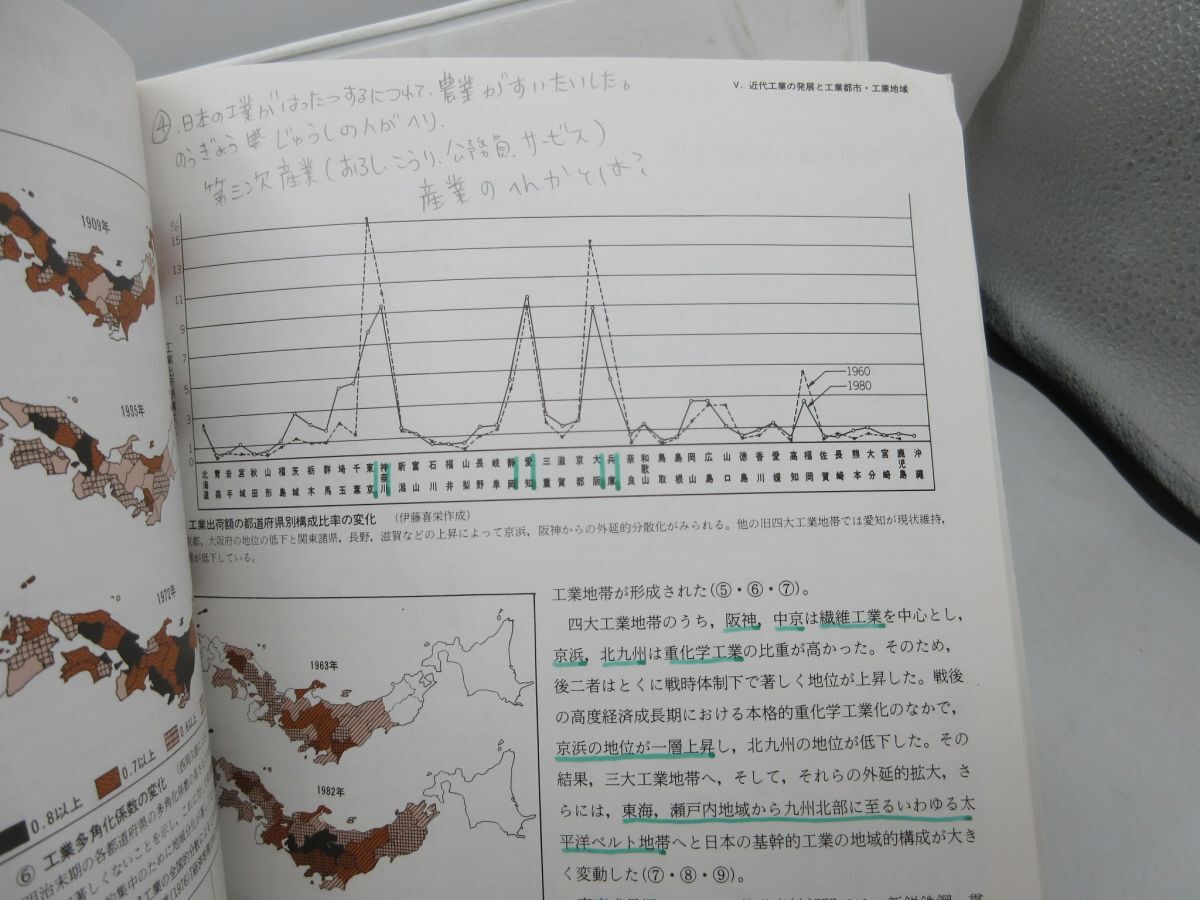 V. 近代工業の発展と工業都市・工業地域
④.日本の工業がはったつするにつれて、農業がすいたいした。
のうぎょう じゅうしの人がヘリ.
第三次産業(おろし、こうり、公務員、サービス)
産業のへんかとは?
%
15
13
11
9
7
5
3
1
0
1960
1980
北海道 青森 岩手 宮城 秋田 山形 福島 茨城 栃木 群馬 埼玉 千葉 東京 神奈川 新潟 富山 石川 福井 山梨 長野 岐阜 静岡 愛知 三重 滋賀 京都 大阪 兵庫 奈良 和歌山 鳥取 島根 岡山 広島 山口 徳島 香川 愛媛 高知 福岡 佐賀 長崎 熊本 大分 宮崎 鹿児島 沖縄
工業出荷額の都道府県別構成比率の変化 (伊藤喜栄作成)
京都,大阪府の地位の低下と関東諸県,長野,滋賀などの上昇によって京浜,阪神からの外延的分散化がみられる。他の旧四大工業地帯では愛知が現状維持,
が低下している。
1909年
1935年
1972年
0.8以上
0.7以上
0.6以上
⑥ 工業多角化係数の変化
明治末期の各都道府県の多角化係数の
1963年
1982年
工業地帯が形成された(⑤・⑥・⑦)。
四大工業地帯のうち,阪神,中京は繊維工業を中心とし,
京浜,北九州は重化学工業の比重が高かった。そのため,
後二者はとくに戦時体制下で著しく地位が上昇した。戦後
の高度経済成長期における本格的重化学工業化のなかで,
京浜の地位が一層上昇し,北九州の地位が低下した。その
結果,三大工業地帯へ,そして,それらの外延的拡大,さ
らには,東海,瀬戸内地域から九州北部に至るいわゆる太
平洋ベルト地帯へと日本の基幹的工業の地域的構成が大き
く変動した(⑦・⑧・⑨)。